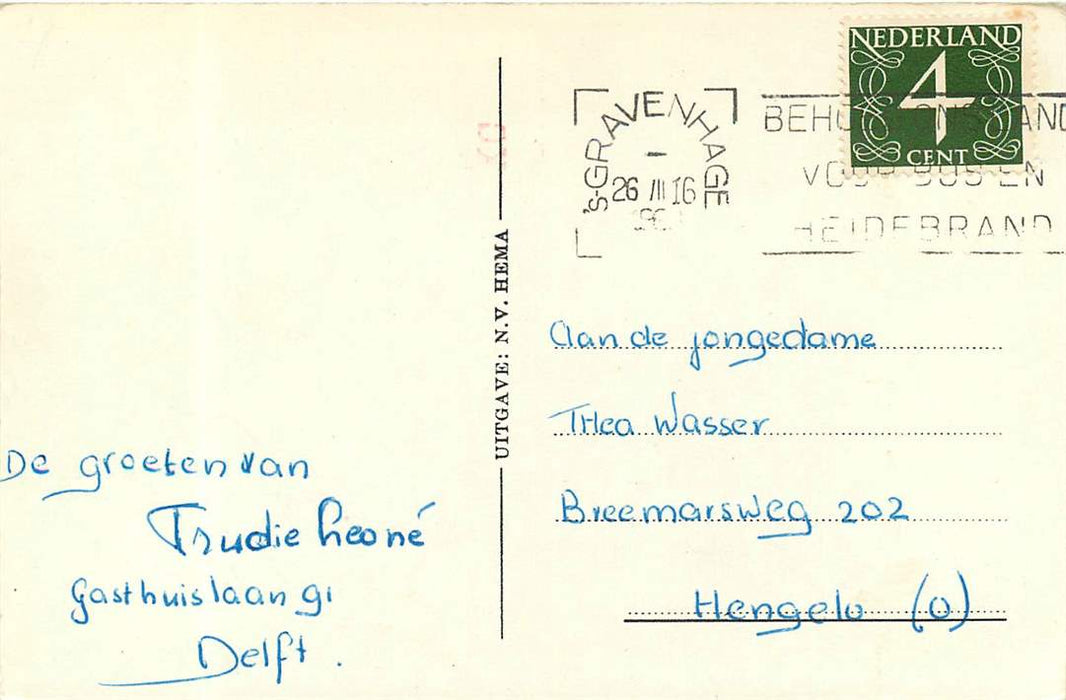 NEDERLAND
4
CENT
's-GRAVENHAGE
26 III 16
VOOR BOS EN
HEIDEBRAND
UITGAVE: N.V. HEMA
Aan de jongedame
THea Wasser
Breemarsweg 202
Hengelo (O)
De groeten van
Trudie Leoné
Gasthuislaan 91
Delft.